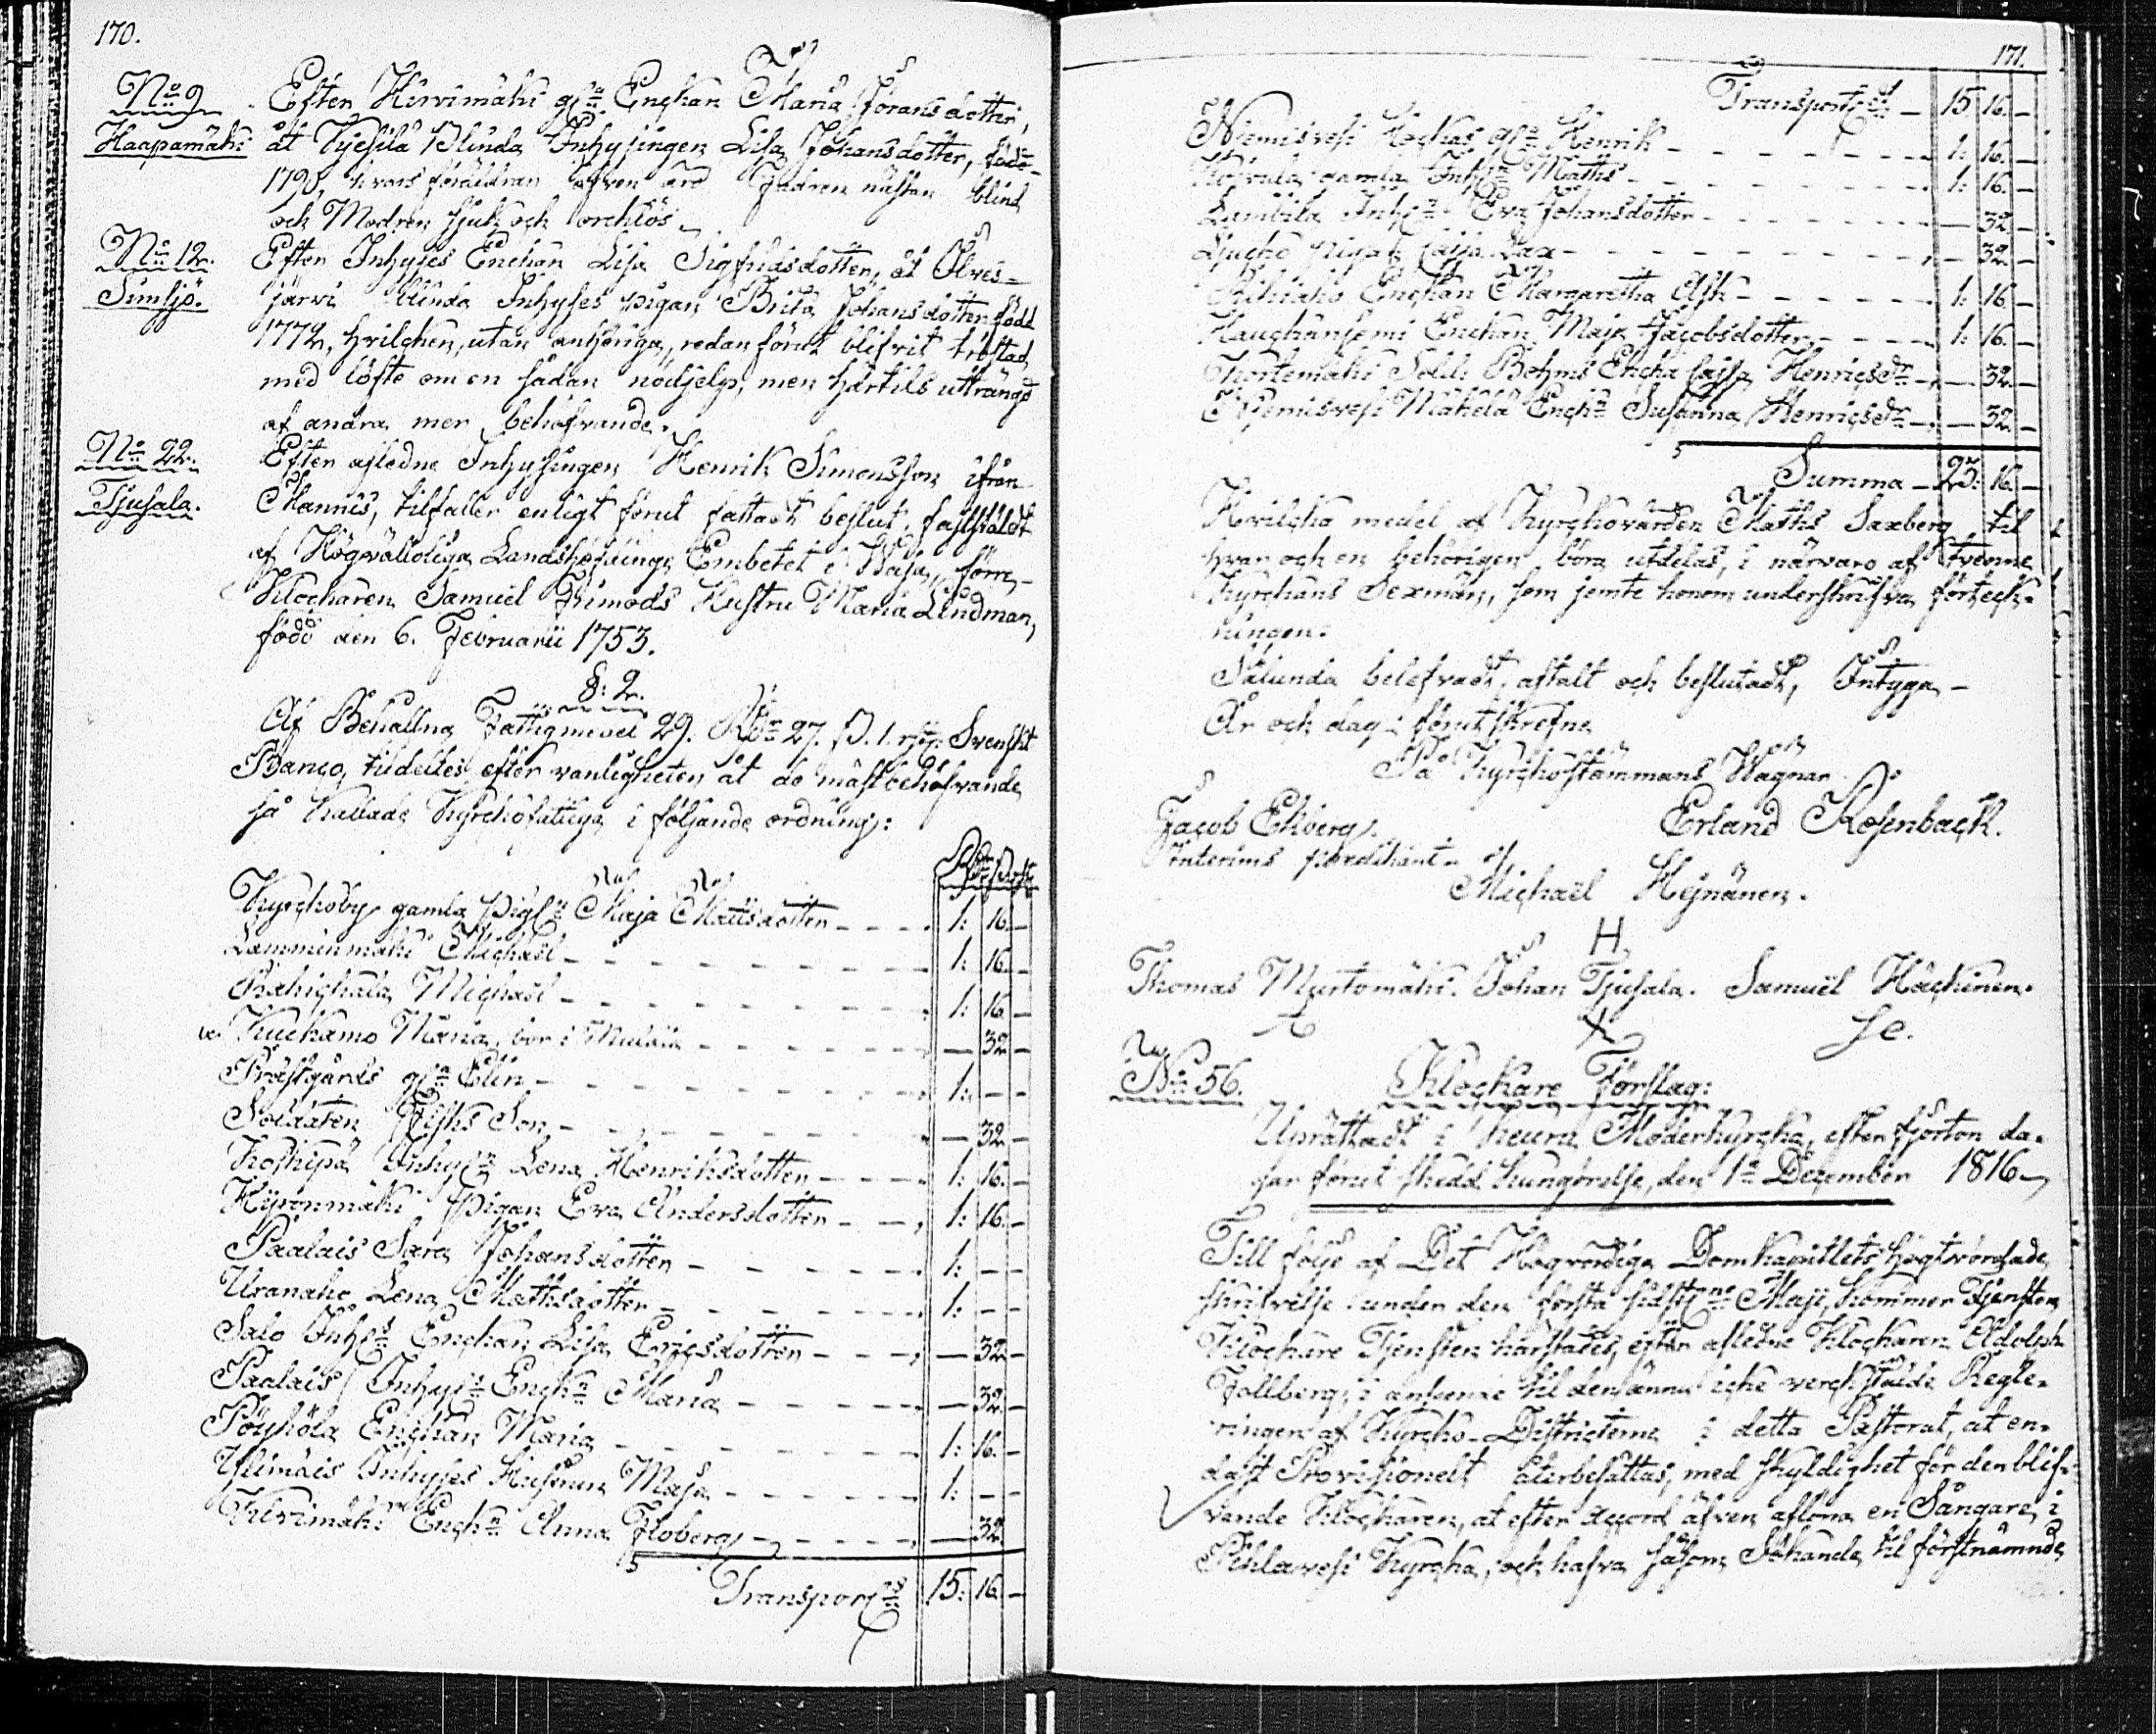 170.
No 9
Haapamäki
Efter Hirvimäki gla Enckan Maria Jöransdotter,
åt Vjesilä Blinda Inhysingen Lisa Johansdotter, född
1798, hvars föräldrar äfven äro Fadren nästan blind
och Modren sjuk och orchlös.
No 12.
Simsjö.
Efter Inhyses Enckan Lisa Sigfridsdotter, åt
järvi blinda Inhyses pigan Brita Johansdotter född
1772, hvilcken, utan anhöriga, redan förut blifvit tröstad
med löfte om en sådan nödhjelp, men härtils utträngd
af andra mer behöfvande.
No 22.
Tjusala.
Efter afledne Inhysingen Henrik Simonsson ifrån
Mannis, tilfaller enligt förut fattadt beslut, fastställdt
af Högvälloliga Landshöfdinge Embetet i Wasa, förre
Klockaren Samuel Frimods Hustru Maria Lindman,
född den 6. Februarii 1753.
§: 2.
Af Behållna Fattigmedel 29. Rdr 27. s. 1. Svenskt
Banco, tildeltes efter vanligheten åt de mäst behöfvande
så kallade Kyrchofattiga i följande ordning:
Kyrchoby gamla Pign Maja Mattsdotter - 1: 16. -
Lamminmäki Michaël - 1: 16. -
Michaël - 1: 16. -
Kuckamo Maria, bor i - - 32 -
Prästgårds gla Elin - 1: - -
Soldaten Fisks Son - - 32 -
Koskipä Inhyn Lena Henriksdotter - 1: 16. -
Kyrönmäki Pigan Eva Andersdotter - 1: 16. -
Paalais Sara Johansdotter - 1: - -
Uranaho Lena Mathsdotter - 1: - -
Salo Inhs Enckan Lisa Ericsdotter - - 32 -
Paalais Inhys Enckn Maria - - 32. -
Pöyhölä Enckan Maria - 1: 16. -
Ylimäis Inhyses Hustrun Maja - 1: - -
Hirvimäki Enckn Anna Floberg - - 32
Transport 15: 16. -
171.
Transport - 15 16. -
Niemisvesi Kockas gla Henrik - 1: 16. -
gamla Inhn Maths - 1: 16. -
Lambila Inhn Eva Johansdotter - - 32 -
Ljucko pigan Cajsa Lax - - 32 -
Riihiaho Enckan Margaretha Ask - 1: 16 -
Hauckaniemi Enckan Maja Jacobsdotter - 1: 16. -
Sold: Bohms Encka Cajsa Henricsdr - - 32. -
Niemisvesi Mäkelä Enckn Susanna Henricsdr - - 32. -
Summa - 23: 16. -
Hvilcka medel af Kyrckovärden Maths Saxberg til
hvar och en behörigen böra utdelas, i närvaro af tvenne
Kyrckans Sexmän, som jemte honom underskrifva förteck-
ningen.
Sålunda belefvadt, aftalt och beslutadt, Intyga, -
År och dag förutskrefne
På Kyrckostämmans Wägnar
Jacob Ekberg.
Interims prædikant.
Erland Rosenback.
Michaël Hejnänen.
H
Thomas Murtomäki. Johan Tjusala. Samuël Hackinen.
No 56.
Klockare Förslag:
Uprättadt i Keuru Moderkyrcka, efter fjorton da-
gar förut skedd kungörelse, den 1a December 1816.
Till följe af Det Högvördiga Domkapitlets högtvördade
skrifvelse under den första sidstne Maji, kommer Tjensten
Klockare Tjensten härstädes, efter afledne Klockaren Adolph
Follberg, i anseende til den ännu icke verckstälde Regle-
ringen af Kyrcko-Districterne i detta Pastorat, at en-
dast Provisionelt återbesättas, med skyldighet för den blif-
vande Klockaren, at efter accord äfven aflöna en Sångare i
Pihlavesi Kyrcka, och hafva såsom Sökande til förstnämnde